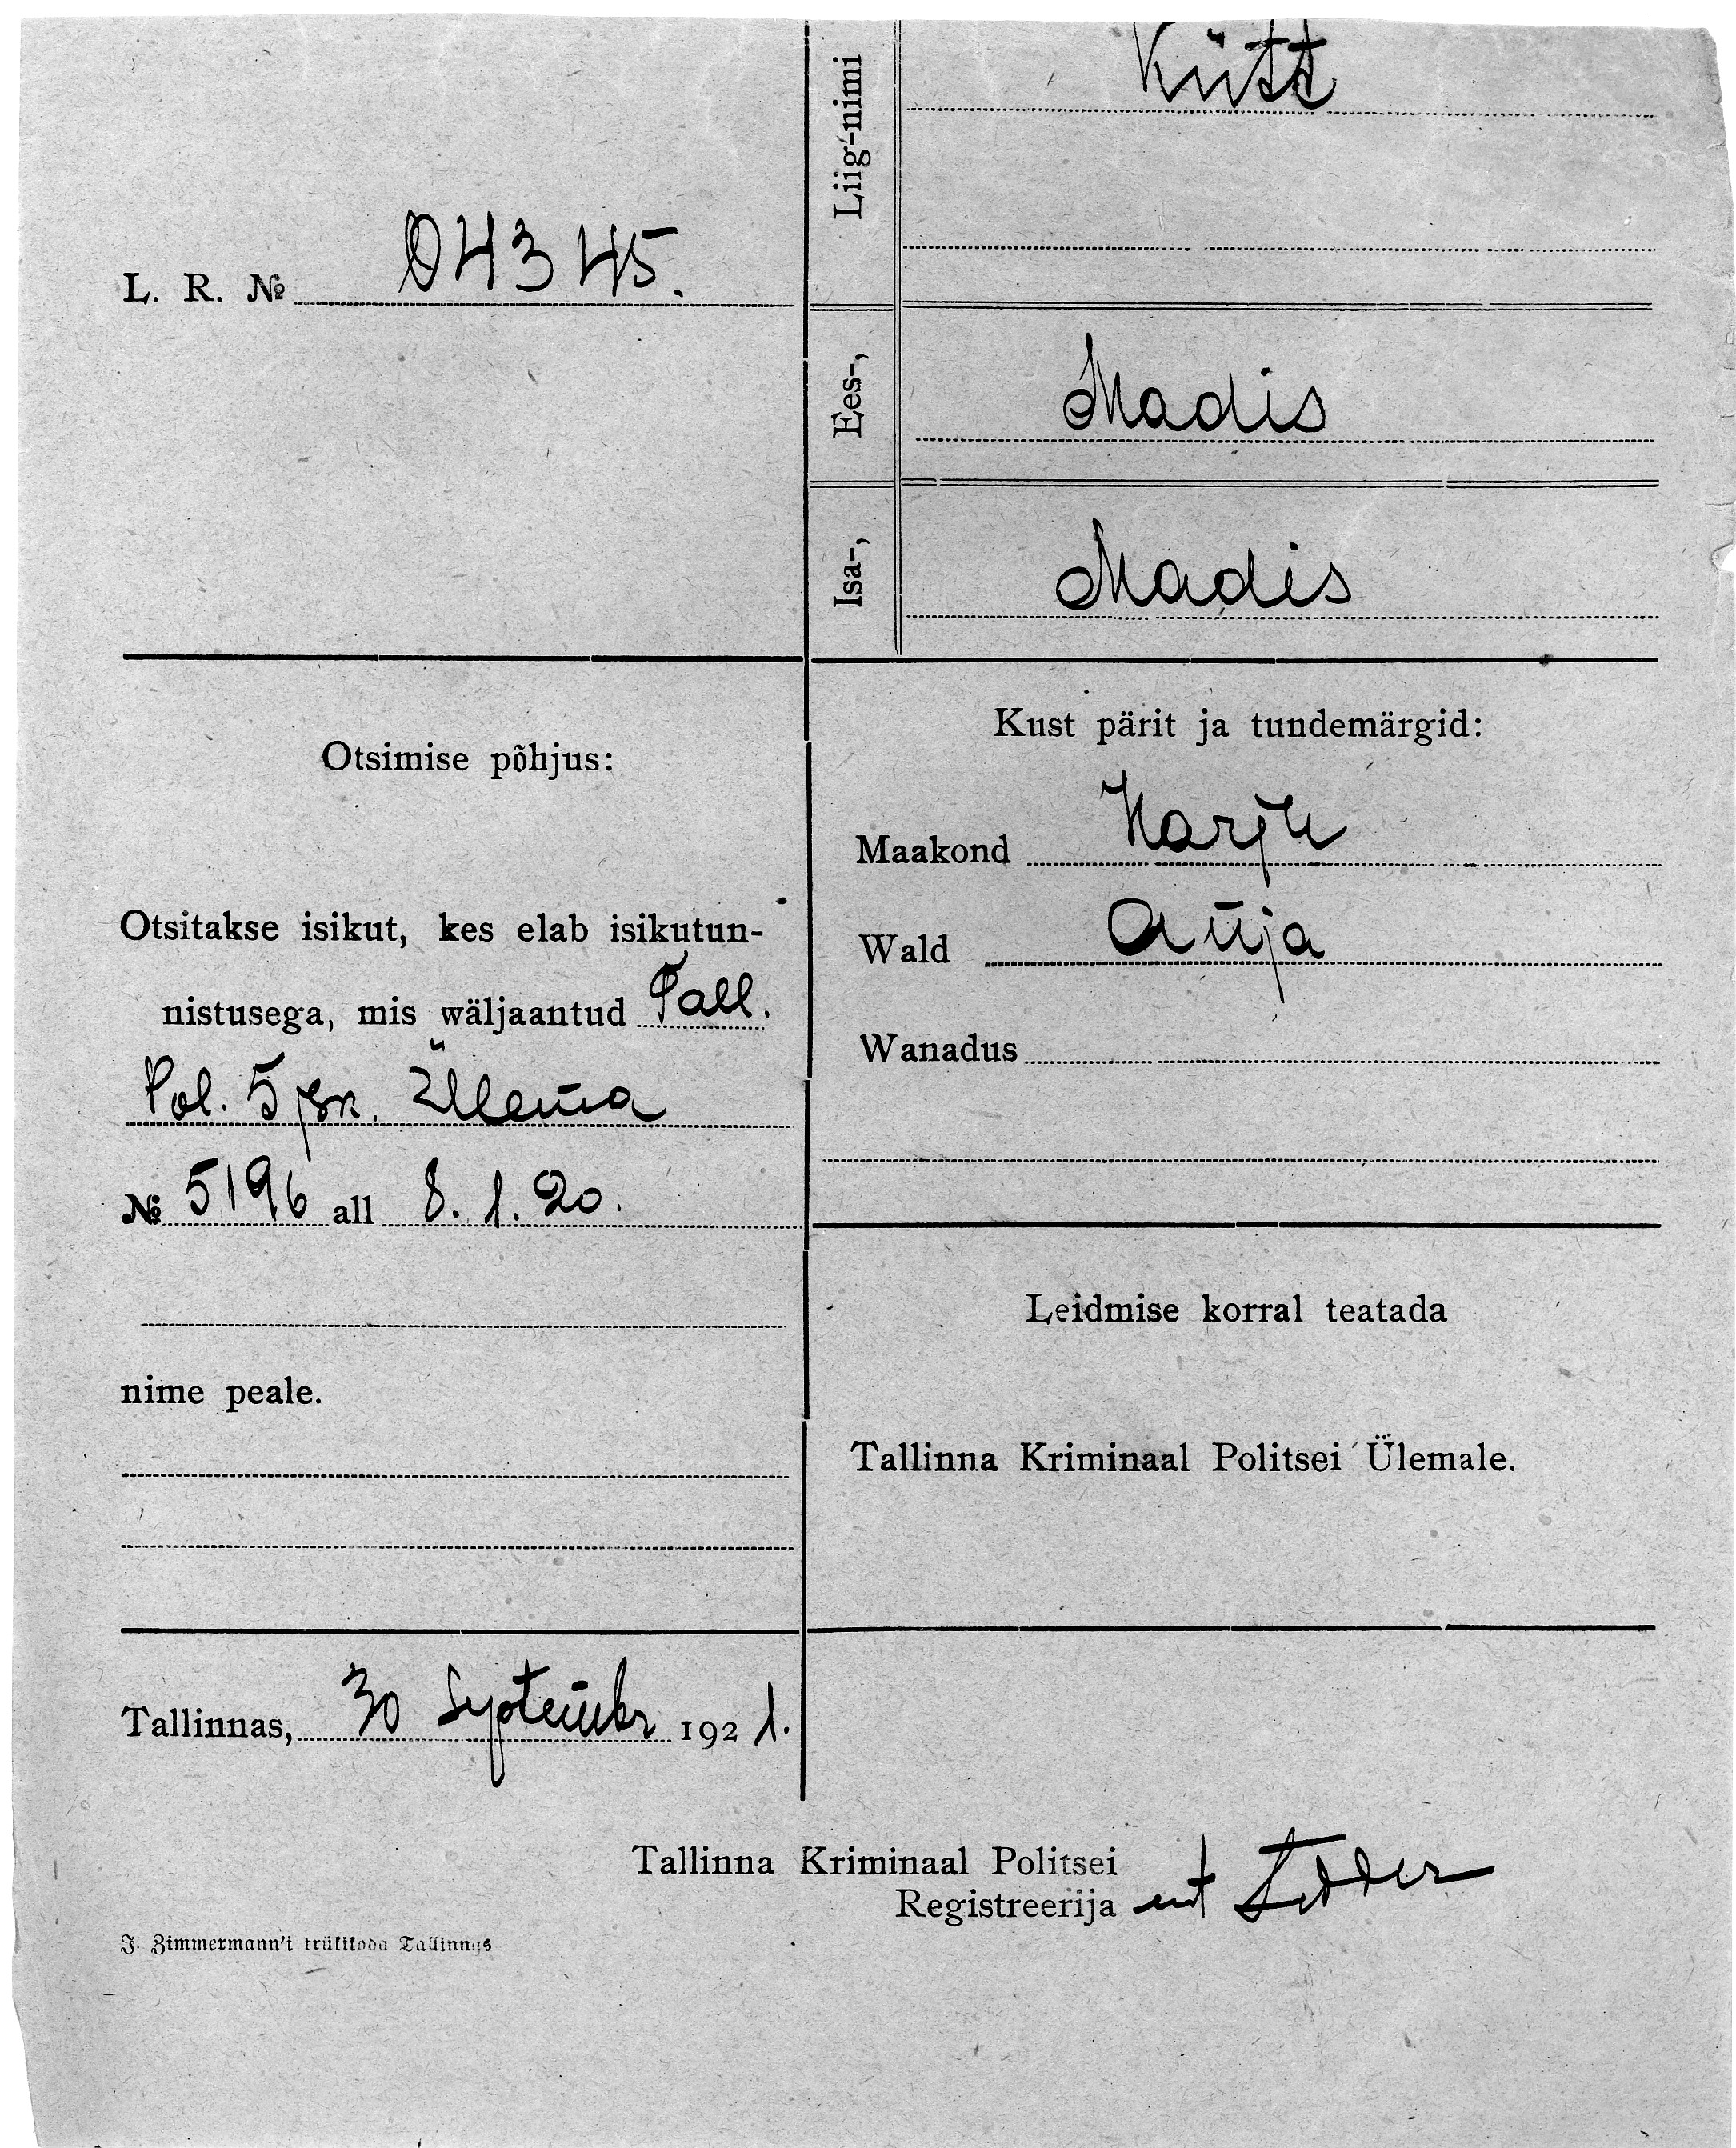 L. R. № 04345.
Liig-nimi Kütt
Ees-, Madis
Isa-, Madis
Otsimise põhjus:
Otsitakse isikut, kes elab isikutun-
nistusega, mis wäljaantud Tall.
Pol. 5 jsk. Ülema
№ 5196 all 8. 1. 20.
nime peale.
Kust pärit ja tundemärgid:
Maakond Harju
Wald Anija
Wanadus
Leidmise korral teatada
Tallinna Kriminaal Politsei Ülemale.
Tallinnas, 30 Septembr 1921.
Tallinna Kriminaal Politsei
Registreerija
J. Zimmermann'i trükikoda Tallinnas